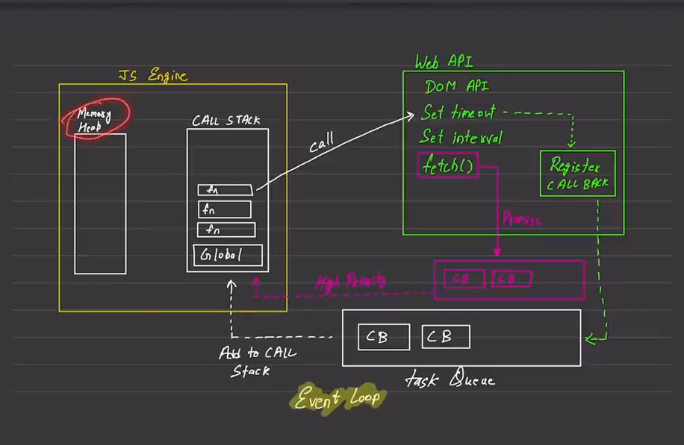 JS Engine
Memory
Heap
CALL STACK
fn
fn
fn
Global
call
Web API
DOM API
Set timeout
Set interval
fetch()
Register
CALL BACK
Promise
CB CB
High Priority
CB CB
Task Queue
Add to CALL
Stack
Event Loop